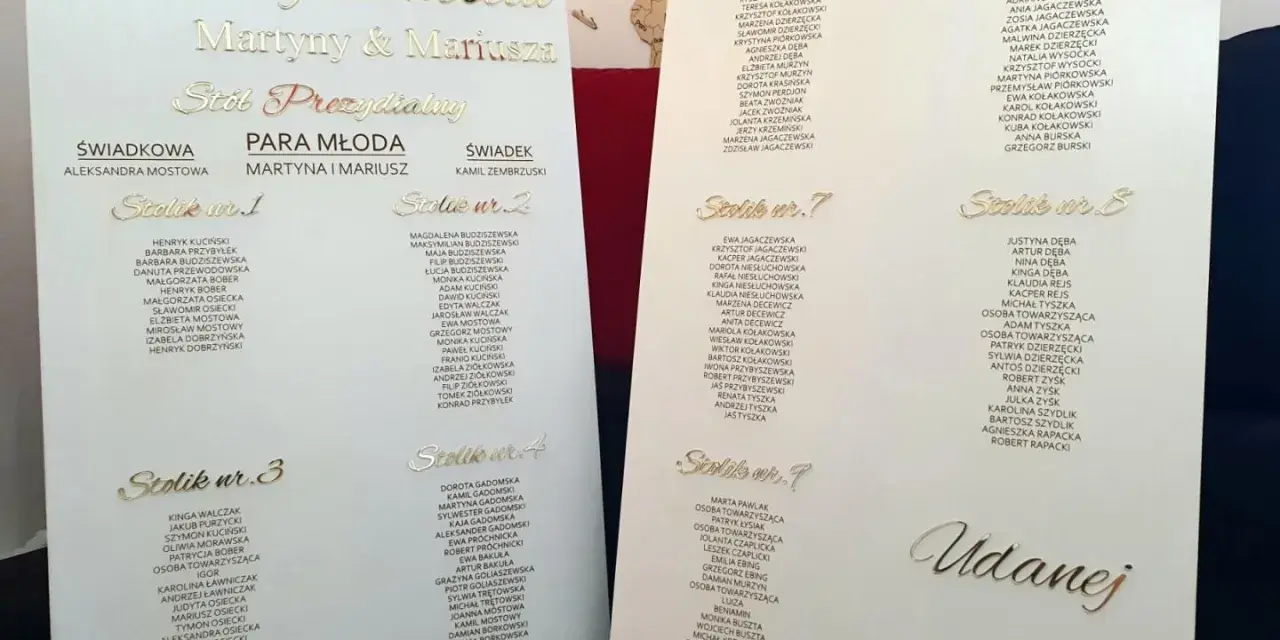 Martyny & Mariusza
Stół Prezydialny
ŚWIADKOWA
ALEKSANDRA MOSTOWA
PARA MŁODA
MARTYNA I MARIUSZ
ŚWIADEK
KAMIL ZEMBRZUSKI
Stolik nr.1
HENRYK KUCIŃSKI
BARBARA PRZYBYŁEK
BARBARA BUDZISZEWSKA
DANUTA PRZEWODOWSKA
MAŁGORZATA BOBER
HENRYK BOBER
MAŁGORZATA OSIECKA
SŁAWOMIR OSIECKI
ELŻBIETA MOSTOWA
MIROSŁAW MOSTOWY
IZABELA DOBRZYŃSKA
HENRYK DOBRZYŃSKI
Stolik nr.2
MAGDALENA BUDZISZEWSKA
MAKSYMILIAN BUDZISZEWSKI
MAJA BUDZISZEWSKA
FILIP BUDZISZEWSKI
ŁUCJA BUDZISZEWSKA
MONIKA KUCIŃSKA
ADAM KUCIŃSKI
DAWID KUCIŃSKI
EDYTA WALCZAK
JAROSŁAW WALCZAK
EWA MOSTOWA
GRZEGORZ MOSTOWY
MONIKA KUCIŃSKA
PAWEŁ KUCIŃSKI
FRANIO KUCIŃSKI
IZABELA ZIÓŁKOWSKA
ANDRZEJ ZIÓŁKOWSKI
FILIP ZIÓŁKOWSKI
TOMEK ZIÓŁKOWSKI
KONRAD PRZYBYŁEK
Stolik nr.3
KINGA WALCZAK
JAKUB PURZYCKI
SZYMON KUCIŃSKI
OLIWIA MORAWSKA
PATRYCJA BOBER
OSOBA TOWARZYSZĄCA
IGOR
KAROLINA ŁAWNICZAK
ANDRZEJ ŁAWNICZAK
JUDYTA OSIECKA
MARIUSZ OSIECKI
TYMON OSIECKI
ALEKSANDRA OSIECKA
Stolik nr.4
DOROTA GADOMSKA
KAMIL GADOMSKI
MARTYNA GADOMSKA
SYLWESTER GADOMSKI
KAJA GADOMSKA
ALEKSANDER GADOMSKI
EWA PRÓCHNICKA
ROBERT PRÓCHNICKI
EWA BAKUŁA
ARTUR BAKUŁA
GRAŻYNA GOLIASZEWSKA
PIOTR GOLIASZEWSKI
SYLWIA TRĘTOWSKA
MICHAŁ TRĘTOWSKI
JOANNA MOSTOWA
KAMIL MOSTOWY
DAMIAN BORKOWSKI
BORKOWSKA
TERESA KOŁAKOWSKA
KRZYSZTOF KOŁAKOWSKI
MARZENA DZIERZĘCKA
SŁAWOMIR DZIERZĘCKI
KRYSTYNA PIÓRKOWSKA
AGNIESZKA DĘBA
ANDRZEJ DĘBA
ELŻBIETA MURZYN
KRZYSZTOF MURZYN
DOROTA KRASIŃSKA
SZYMON PERDJON
BEATA ZWOŹNIAK
JACEK ZWOŹNIAK
JOLANTA KRZEMIŃSKA
JERZY KRZEMIŃSKI
MARZENA JAGACZEWSKA
ZDZISŁAW JAGACZEWSKI
ANIA JAGACZEWSKA
ZOSIA JAGACZEWSKA
AGATKA JAGACZEWSKA
MALWINA DZIERZĘCKA
MAREK DZIERZĘCKI
NATALIA WYSOCKA
KRZYSZTOF WYSOCKI
MARTYNA PIÓRKOWSKA
PRZEMYSŁAW PIÓRKOWSKI
EWA KOŁAKOWSKA
KAROL KOŁAKOWSKI
KONRAD KOŁAKOWSKI
KUBA KOŁAKOWSKI
ANNA BURSKA
GRZEGORZ BURSKI
Stolik nr.7
EWA JAGACZEWSKA
KRZYSZTOF JAGACZEWSKI
KACPER JAGACZEWSKI
DOROTA NIESŁUCHOWSKA
RAFAŁ NIESŁUCHOWSKI
KINGA NIESŁUCHOWSKA
KLAUDIA NIESŁUCHOWSKA
MARZENA DECEWICZ
ARTUR DECEWICZ
ANITA DECEWICZ
MARIOLA KOŁAKOWSKA
WIESŁAW KOŁAKOWSKI
WIKTOR KOŁAKOWSKI
BARTOSZ KOŁAKOWSKI
IWONA PRZYBYSZEWSKA
ROBERT PRZYBYSZEWSKI
JAŚ PRZYBYSZEWSKI
RENATA TYSZKA
ANDRZEJ TYSZKA
JAŚ TYSZKA
Stolik nr.8
JUSTYNA DĘBA
ARTUR DĘBA
NINA DĘBA
KINGA DĘBA
KLAUDIA REJS
KACPER REJS
MICHAŁ TYSZKA
OSOBA TOWARZYSZĄCA
ADAM TYSZKA
OSOBA TOWARZYSZĄCA
PATRYK DZIERZĘCKI
SYLWIA DZIERZĘCKA
ANTOŚ DZIERZĘCKI
ROBERT ZYŚK
ANNA ZYŚK
JULKA ZYŚK
KAROLINA SZYDLIK
BARTOSZ SZYDLIK
AGNIESZKA RAPACKA
ROBERT RAPACKI
Stolik nr.9
MARTA PAWLAK
OSOBA TOWARZYSZĄCA
PATRYK ŁYSIAK
OSOBA TOWARZYSZĄCA
JOLANTA CZAPLICKA
LESZEK CZAPLICKI
EMILIA EBING
GRZEGORZ EBING
DAMIAN MURZYN
OSOBA TOWARZYSZĄCA
LUIZA
BENIAMIN
MONIKA BUSZTA
WOJCIECH BUSZTA
Udanej